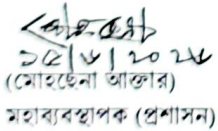 ১৫।৮।২০২৪
(মোহছেনা আক্তার)
মহাব্যবস্থাপক (প্রশাসন)